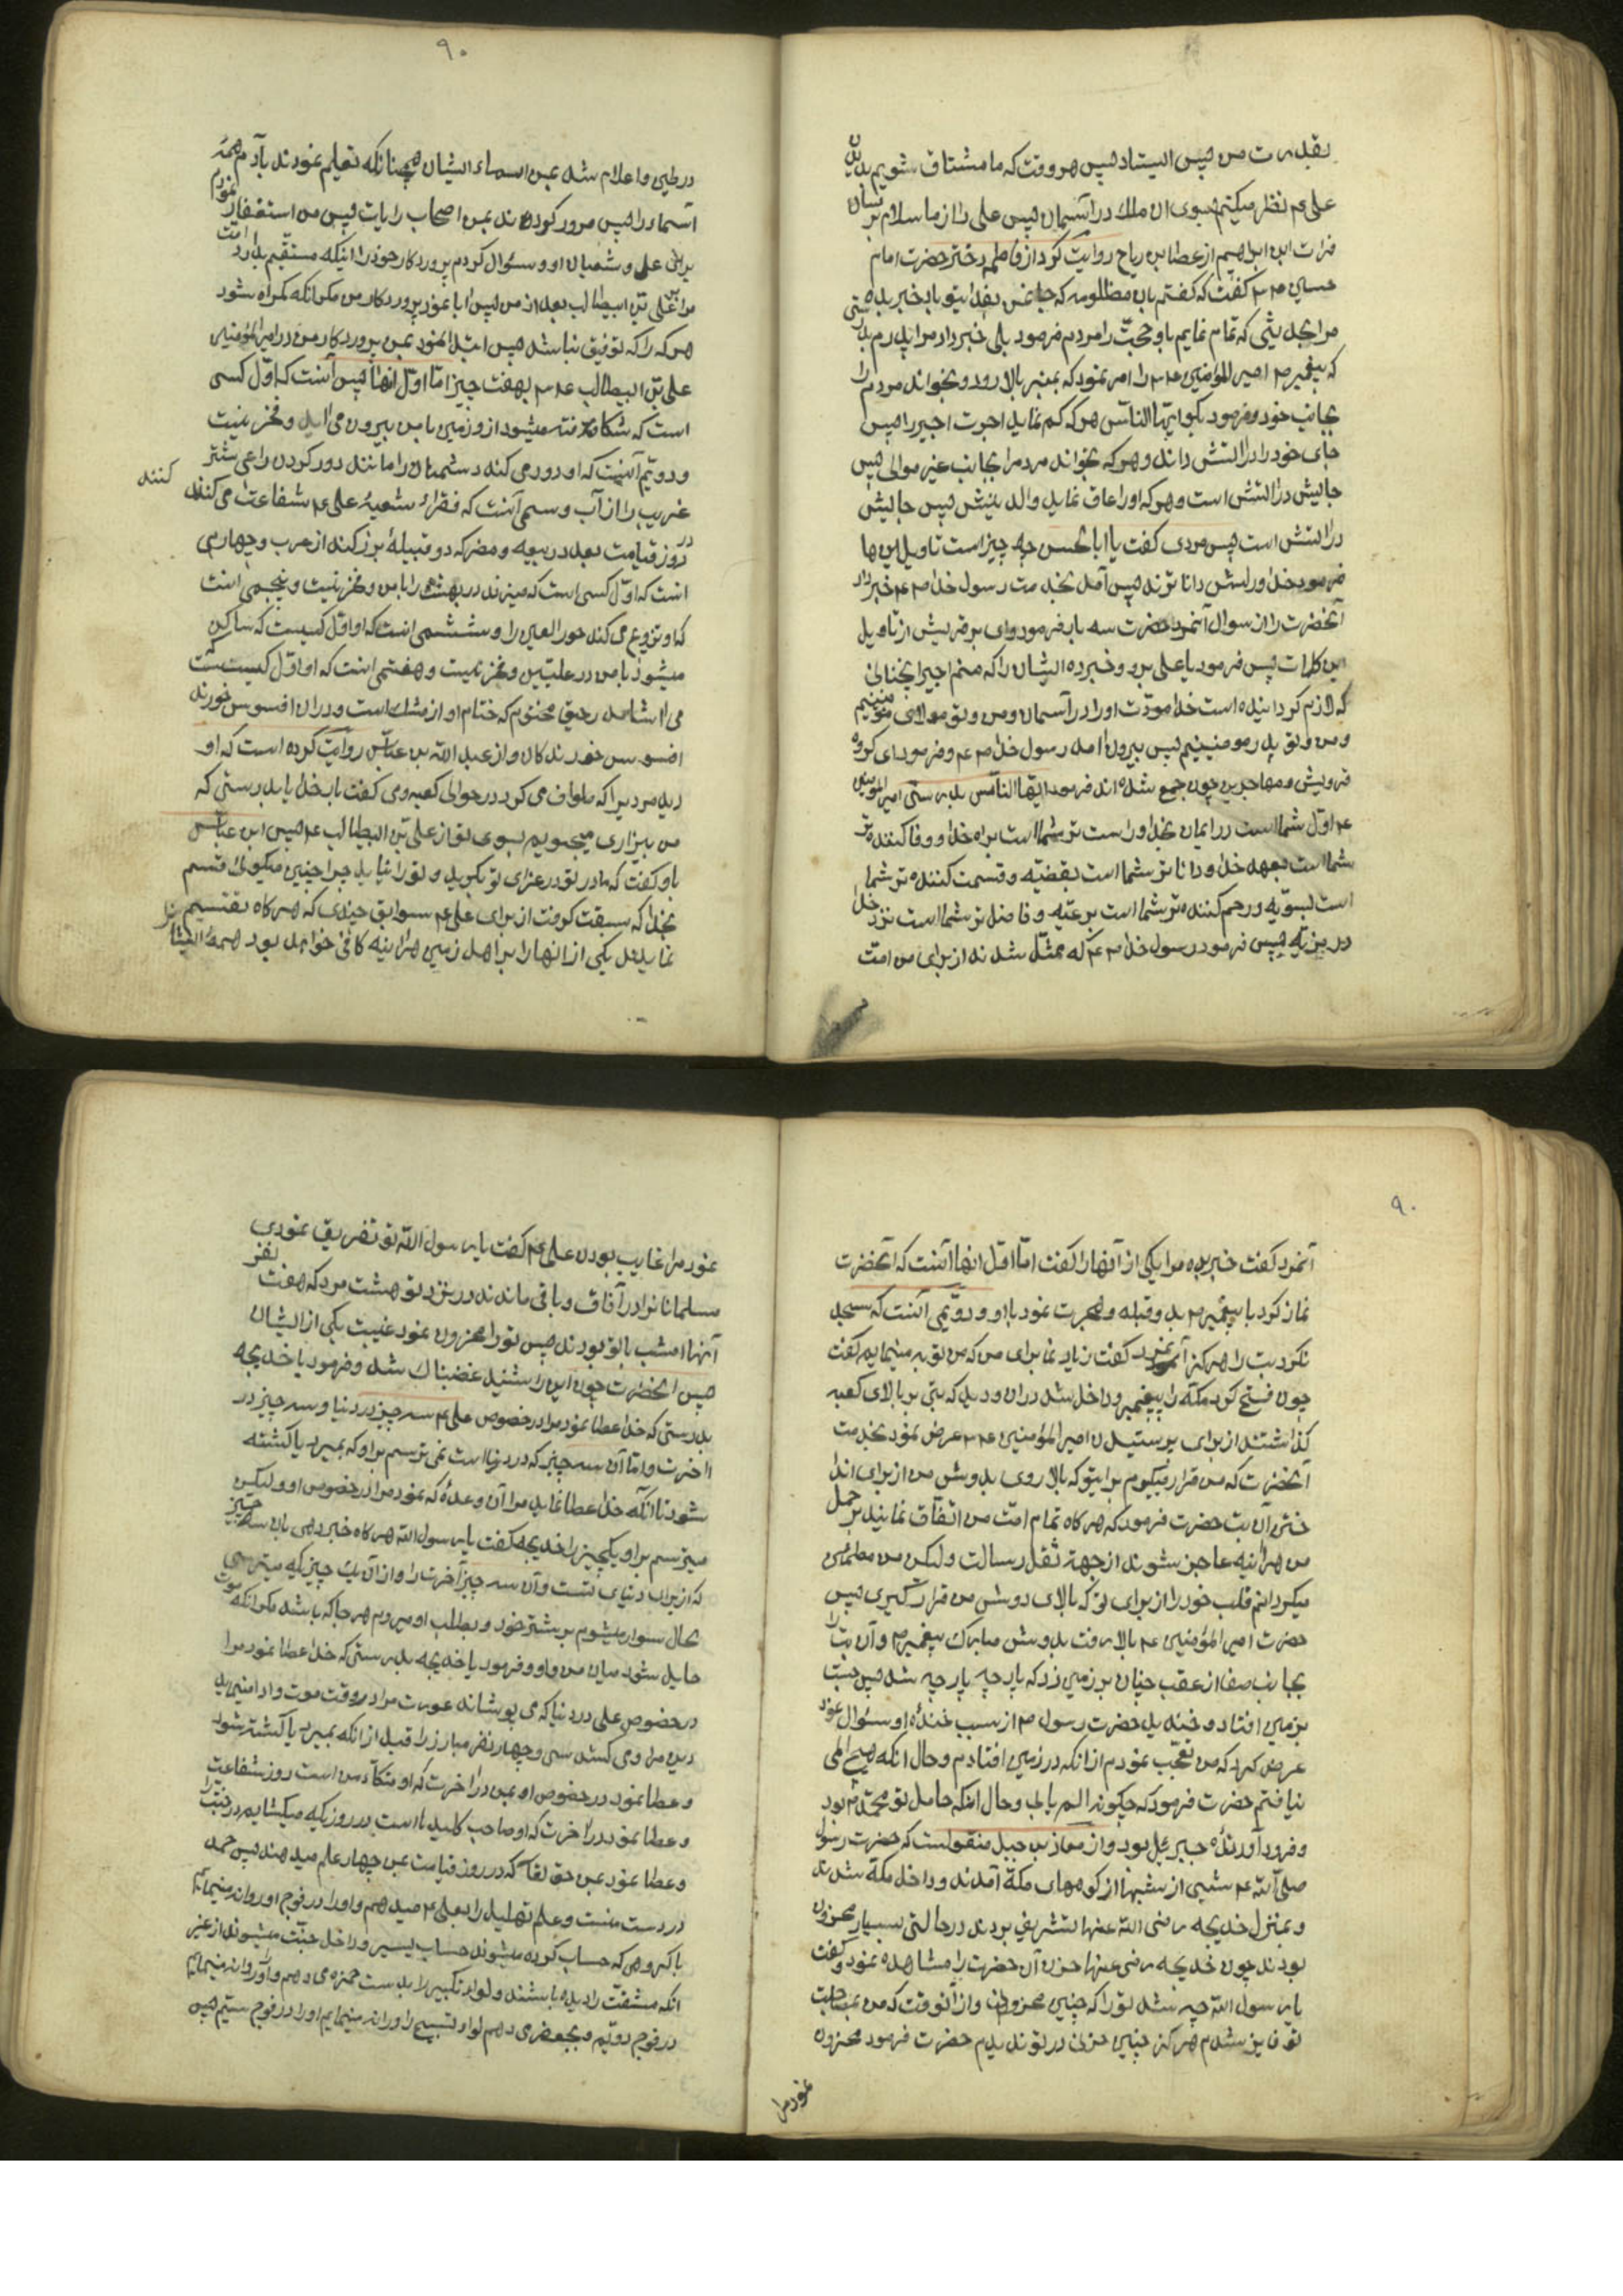 بقدرت من پس ایستاد پس هر وقت که ما مشتاق شویم بدیدن
علی ع نظر میکنیم بسوی آن ملک در آسمان پس علی را از ما سلام برسان
فرات ابن ابراهیم از عطا بن ریاح روایت کرد از فاطمه دختر حضرت امام
حسین ع گفت که گفتم بان مظلومه که جانمن بفدایتو باد خبر بده
مرا بحدیثی که تمام نمایم باو حجت را بمردم فرمود بلی خبر داد مرا پدرم بدرستی
که پیغمبر ص امیر المؤمنین ع را امر نمود که بمنبر بالا رود و بخواند مردم را
بجانب خود و فرمود بگو ایها الناس هر که کم نماید اجرت اجیر را پس
جای خود را در آتش داند و هر که بخواند مردم را بجانب غیر موالی پس
جایش در آتش است و هر که او را عاق نماید والدینش پس جایش
در آتش است پس مردی گفت یا ابا الحسن چه چیز است تاویل این ها
فرمود خدا و رسولش داناترند پس آمد بخدمت رسول خدا ص خبر داد
آنحضرت را از سوال آنمرد حضرت سه بار فرمود وای بر قریش از تاویل
این کلمات پس فرمود یا علی برو و خبر ده ایشان را که منم اجیر آنچنانی
که لازم گردانیده است خدا مودت او را در آسمان و من و تو مولای مؤمنینیم
و من و تو پدر مومنینیم پس بیرون آمد رسول خدا ص و فرمود ای گروه
قریش و مهاجرین چون جمع شده اند فرمود ایها الناس بدرستی امیر المؤمنین
ع اول شما است در ایمان بخدا و راست تر شما است براه خدا و وفا کننده تر
شما است بعهد خدا و دانا تر شما است بقضیه و قسمت کننده تر شما
است بسویه و رحم کننده تر شما است برعیه و فاضل تر شما است نزد خدا
در مزیه پس فرمود رسول خدا ص که ممثل شدند از برای من امت
۹۰
در طین و اعلام شد بمن اسماء ایشان همچنانکه تعلیم نمودند بآدم همه
اسماء را پس مرور کردند بمن اصحاب رایات پس من استغفار نمودم
برای علی و شیعیان او و سئوال کردم پروردگار خود را اینکه مستقیم بدارد امت
مرا بر علی بن ابیطالب بعد از من پس ابا نمود پروردگار من مگر آنکه گمراه شود
هر که را که توفیق نباشد پس ابتدا نمود بمن پروردگار من در امیر المؤمنین
علی بن ابیطالب ع بهفت چیز اما اول آنها پس آنست که اول کسی
است که شکافته میشود از او زمین با من بیرون می آید و فخر نیست
و دویم آنست که او دور می کند دشمنان را مانند دور کردن راعی شتر
غریب را از آب و سیمی آنست که فقراء شیعیه علی ع شفاعت می کنند
کنند
در روز قیامت بعدد ربیعه و مضر که دو قبیلهٔ بزرگند از عرب و چهارمی
آنست که اول کسی است که میزند در بهشت را با من و فخر نیست و پنجمی آنست
که او تزویج می کند حور العین را و ششمی آنست که او اول کسیست که ساکن
میشود با من در علیین و فخر نیست و هفتمی آنست که او اول کسیست که
می آشامد رحیق مختوم که ختام او از مشک است و در آن افسوس خورند
افسوس خورندکان و از عبد الله بن عباس روایت کرده است که او
دید مردیرا که طواف می کرد در حوالی کعبه و می گفت بار خدایا بدرستی که
من بیزاری میجویم بسوی تو از علی بن ابیطالب ع پس ابن عباس
باو گفت که مادر تو در عزای تو بگرید و تو را نیابد چرا چنین میگوئی قسم
بخدا که سبقت گرفت از برای علی ع سوابق چندی که هر گاه تقسیم
نماید یکی از انها را بر اهل زمین هر آینه کافی خواهد بود همه ایشان را
۹۰
آنمرد گفت خبر بده مرا یکی از آنها را گفت اما اول انها آنست که آنحضرت
نماز کرد با پیغمبر ص بدو قبله و هجرت نمود با او و دویمی آنست که سجده
نکرد بت را هرگز آنمرد گفت زیاد نما برای من که من توبه مینمایم گفت
چون فتح کرد مکه را پیغمبر و داخل شد در آن و دید که بتی بر بالای کعبه
گذاشتند از برای پرستیدن امیر المؤمنین ع عرض نمود بخدمت
آنحضرت که من قرار میگیرم برایتو که بالا روی بدوش من از برای اندا
ختن آن بت حضرت فرمود که هر گاه تمام امت من اتفاق نمایند بر حمل
من هر آینه عاجز شوند از جهة ثقل رسالت و لیکن من مطمئن
میگردانم قلب خود را از برای تو که بالای دوش من قرار گیری پس
حضرت امیر المؤمنین ع بالا رفت بدوش مبارک پیغمبر ص و آن بت را
بجانب صفا از عقب چنان بر زمین زد که پارچه پارچه شد پس جست
بزمین افتاد و خندید حضرت رسول ص از سبب خندهٔ او سئوال نمود
عرض کرد که من تعجب نمودم از انکه در زمین افتادم و حال انکه هیچ المی
نیافتم حضرت فرمود که چگونه الم یابی و حال آنکه حامل تو محمد ص بود
و فرود آورنده جبرئیل بود و از معاذ بن جبل منقولست که حضرت رسول
صلی الله ع شبی از شبها از کوههای مکه آمدند و داخل مکه شدند
و بمنزل خدیجه رضی الله عنها تشریف بردند در حالتی بسیار محزون
بودند چون خدیجه رضی عنها حزن آن حضرت را مشاهده نمود و گفت
یا رسول الله چه شد تو را که چنین محزونی و از آنوقت که من بمصاحبت
تو فایز شدم هرگز چنین حزنی در تو ندیدم حضرت فرمود محزون
نمود مرا
نمود مرا غایب بودن علی ع گفت یا رسول الله تو تفریق نمودی
مسلمانانرا در آفاق و باقی ماندند در نزد تو هشت مرد که هفت نفر
آنها امشب با تو بودند پس تو را محزون نمود غیبت یکی از ایشان
پس آنحضرت چون این را شنید غضبناک شد و فرمود یا خدیجه
بدرستی که خدا عطا نمود مرا در خصوص علی ع سه چیز در دنیا و سه چیز در
آخرت و اما آن سه چیز که در دنیا است نمی ترسم بر او که بمیرد یا کشته
شود تا آنکه خدا عطا نماید مرا آن وعدهٔ که نمود مرا در خصوص او و لیکن
میترسم بر او یکچیز را خدیجه گفت یا رسول الله هر گاه خبر دهی بان سه چیز
که از برای دنیای تست و آن سه چیز آخرت را و از آن یک چیزیکه میترسی
بحال سوار میشوم بر شتر خود و بطلب او میروم هر جا که باشد مگر آنکه موت
حایل شود میان من و او و فرمود یا خدیجه بدرستی که خدا عطا نمود مرا
در خصوص علی در دنیا که می پوشاند عورت مرا در وقت موت و ادا مینماید
دین مرا و می کشد سی و چهار نفر مبارز را قبل از انکه بمیرد یا کشته شود
و عطا نمود در خصوص او بمن در آخرت که او متکاء من است روز شفاعت
و عطا نمود در آخرت که او صاحب کلید ها است در روزیکه میگشایم در جنت را
و عطا نمود بمن حق تعالی که در روز قیامت بمن چهار علم میدهند پس حمد
در دست منست و علم تهلیل را بعلی ع میدهم و او را در فوج اول روانه مینمایم
با گروهی که حساب کرده میشوند حساب یسیر و داخل جنت میشوند از غیر
انکه مشقت را دیده باشند و لواء تکبیر را بدست حمزه می دهم و او را روانه مینمایم
در فوج دویم و بجعفر می دهم لواء تسبیح را و روانه مینمایم او را در فوج سیم پس